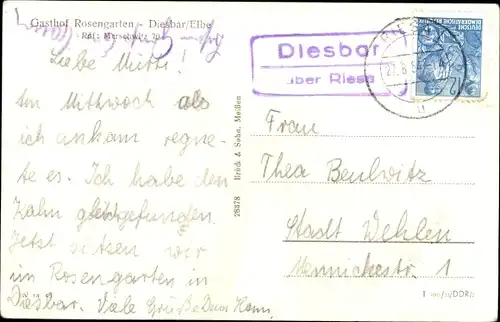 Gasthof Rosengarten - Diesbar/Elbe
Ruf: Merschwitz
Liebe Mutti!
Am Mittwoch als
ich ankam regne-
te es. Ich habe den
Zahn gleich gefunden.
Jetzt sitzen wir
im Rosengarten in
Diesbar. Viele Grüße Dein Hann.
28378 Brück & Sohn, Meißen
Diesbar
über Riesa
RIESA
DEUTSCHE
DEMOKRATISCHE
12
Frau
Thea Beulwitz
Stadt Wehlen
Mennickestr. 1